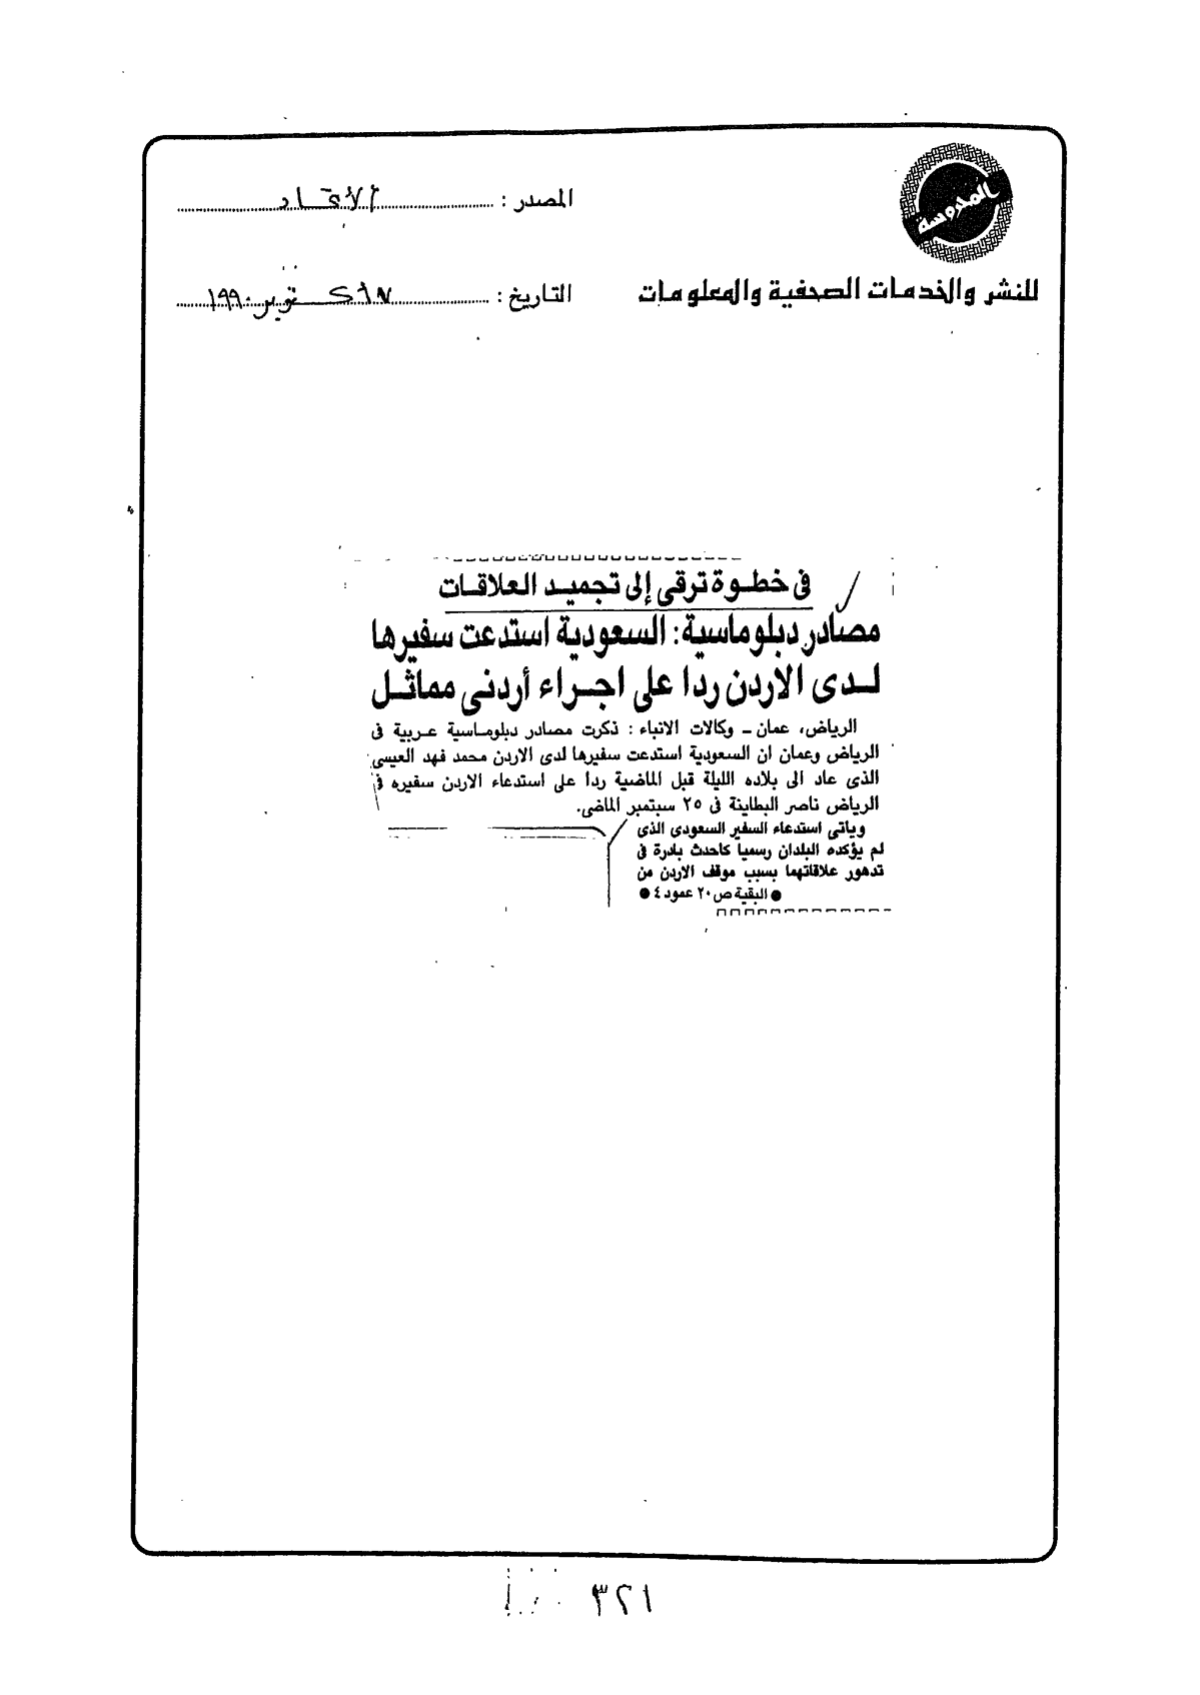 المدوسة
للنشر والخدمات الصحفية والمعلومات
المصدر : الاتحاد
التاريخ : أكتوبر ١٩٩٠
فى خطوة ترقى إلى تجميد العلاقات
مصادر دبلوماسية: السعودية استدعت سفيرها
لدى الاردن ردا على اجراء أردنى مماثل
الرياض، عمان - وكالات الانباء : ذكرت مصادر دبلوماسية عربية فى
الرياض وعمان ان السعودية استدعت سفيرها لدى الاردن محمد فهد العيسى
الذى عاد الى بلاده الليلة قبل الماضية ردا على استدعاء الاردن سفيره فى
الرياض ناصر البطاينة فى ٢٥ سبتمبر الماضى.
وياتى استدعاء السفير السعودى الذى
لم يؤكده البلدان رسميا كاحدث بادرة فى
تدهور علاقاتهما بسبب موقف الاردن من
● البقية ص ٢٠ عمود ٤ ●
٣٢١